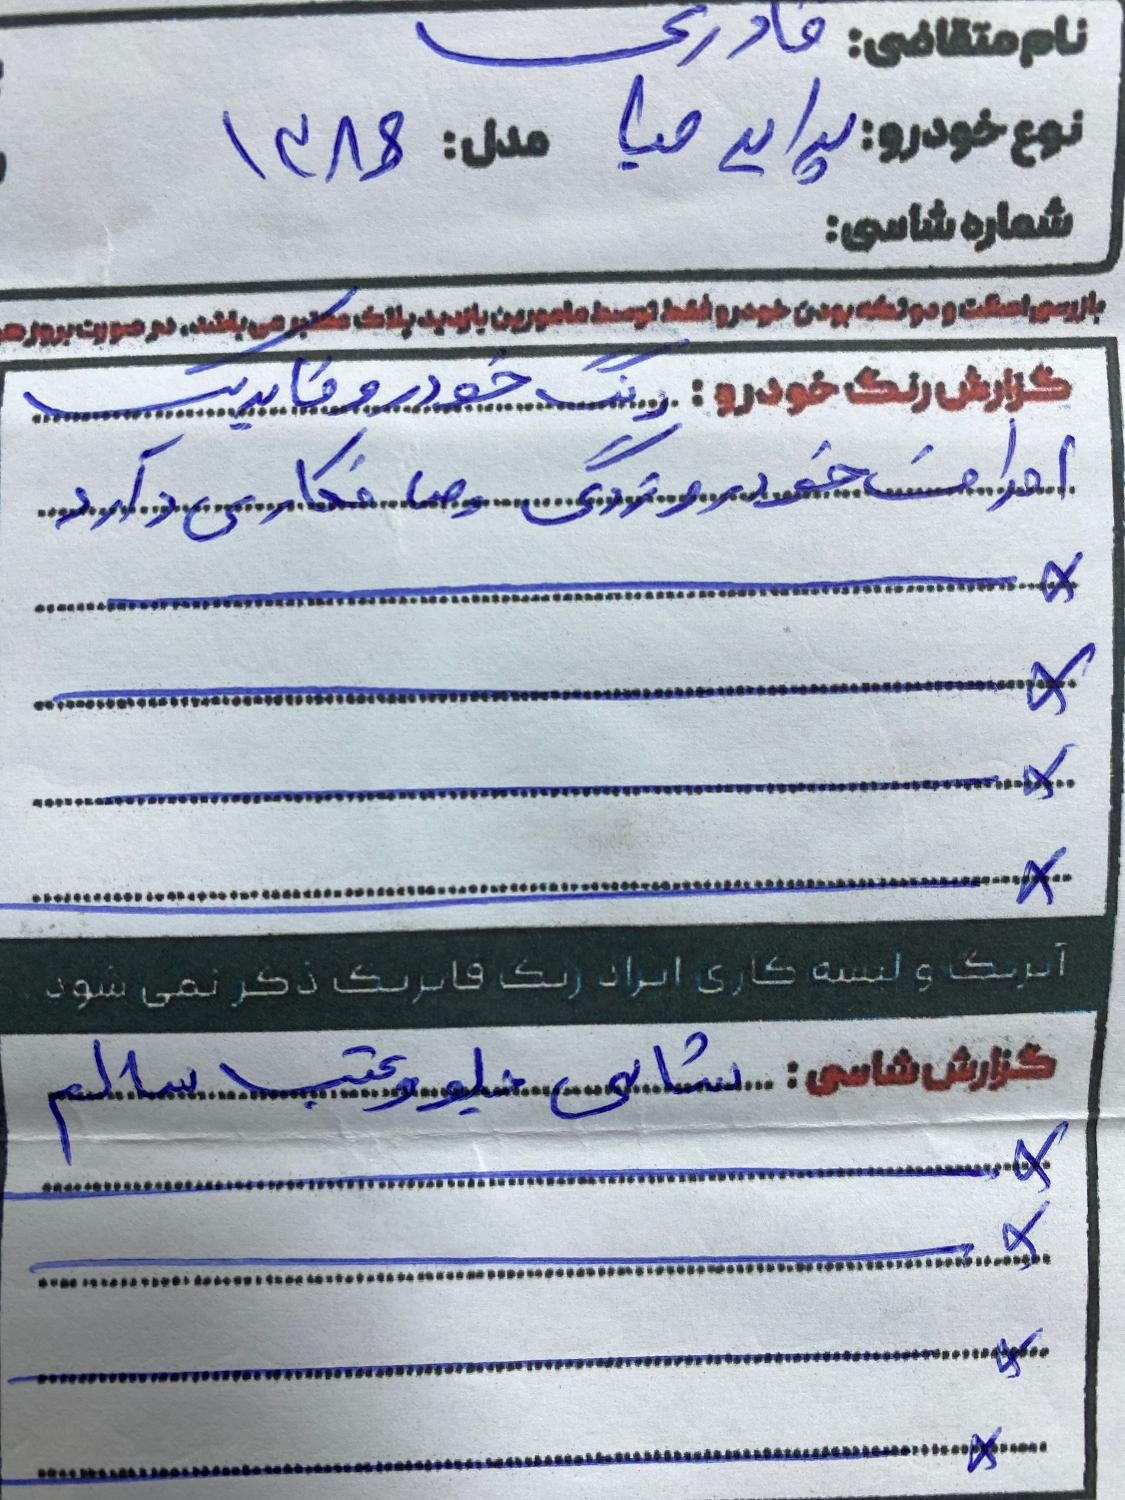 نام متقاضی: قادری
نوع خودرو: پراید صبا مدل: ۱۳۸۶
شماره شاسی:
بازرسی اصالت و دو تکه بودن خودرو فقط توسط مامورین بازدید پلاک معتبر می باشد، در صورت بروز
گزارش رنگ خودرو: رنگ خودرو فابریک
اطراف خودرو زدگی وصافکاری دارد
آبرنگ و لیسه کاری ایراد رنگ فابریک ذکر نمی شود
گزارش شاسی: شاسی جلو وعقب سالم